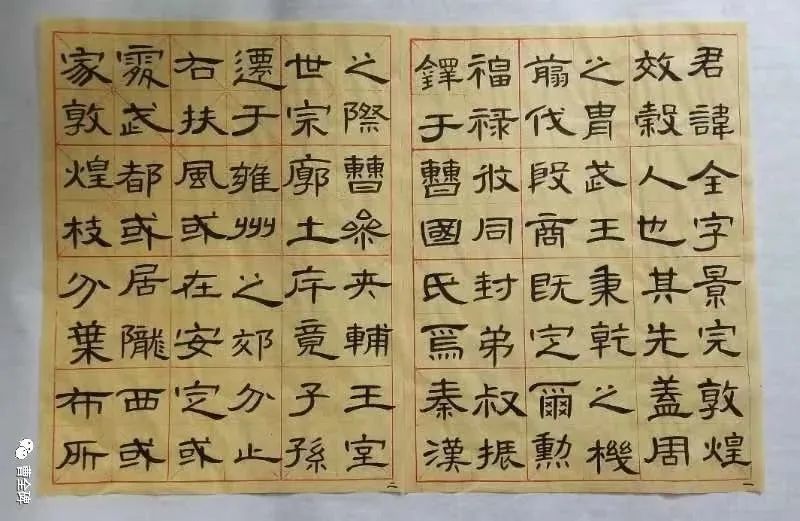 君諱全字景完敦煌
效穀人也其先蓋周
之胄武王秉乾之機
翦伐殷商既定爾勳
福禄攸同封弟叔振
鐸于曹國氏焉秦漢
一
之際曹參夾輔王室
世宗廓土斥竟子孫
遷于雍州之郊分止
右扶風或在安定或
處武都或居隴西或
家敦煌枝分葉布所
二
曹全碑